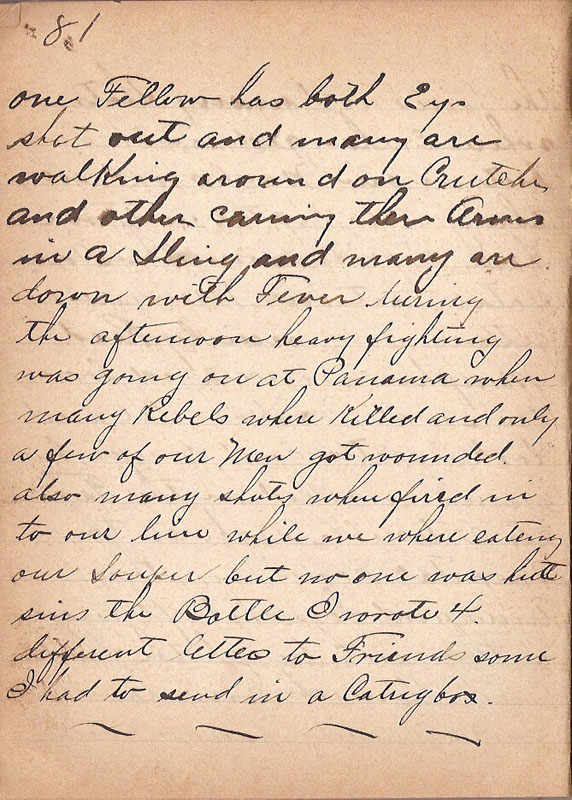 81
one Fellow has both Eys
shot out and many are
walking around on Crutches
and other carring there Arms
in a Sling and many are
down with Fever during
the afternoon heavy fighting
was going on at Panama when
many Rebels where Killed and only
a few of our Men got wounded.
also many shots where fired in
to our line while we where eateng
our Souper but no one was hitt
sins the Battle I wrote 4
different letters to Friends some
I had to send in a Catrigbox.